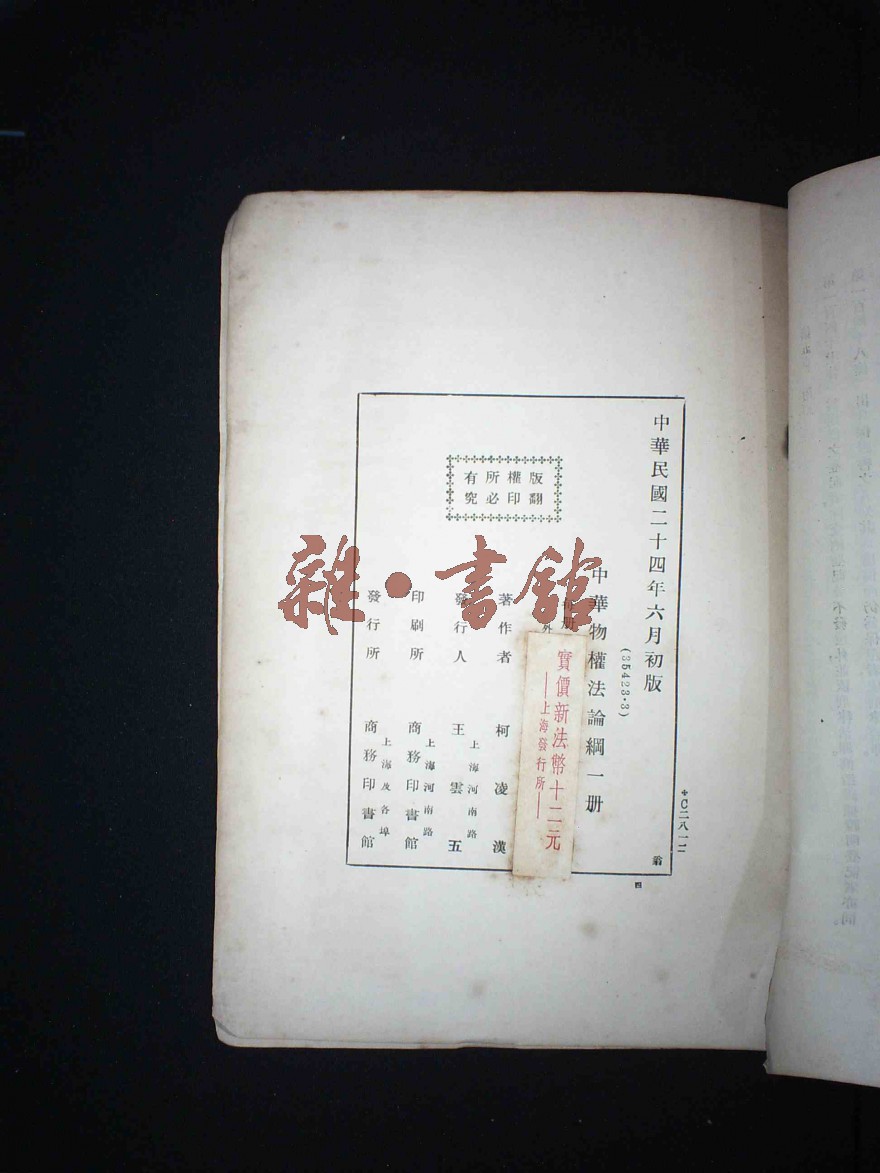 中華民國二十四年六月初版
(35423·3)
中華物權法論綱一册
外
實價新法幣十二元
—上海發行所—
著作者 柯凌漢
發行人 王雲五
上海河南路
印刷所 商務印書館
上海河南路
發行所 商務印書館
上海及各埠
版權所有
翻印必究
＊C二八一二
翁
四
雜·書館